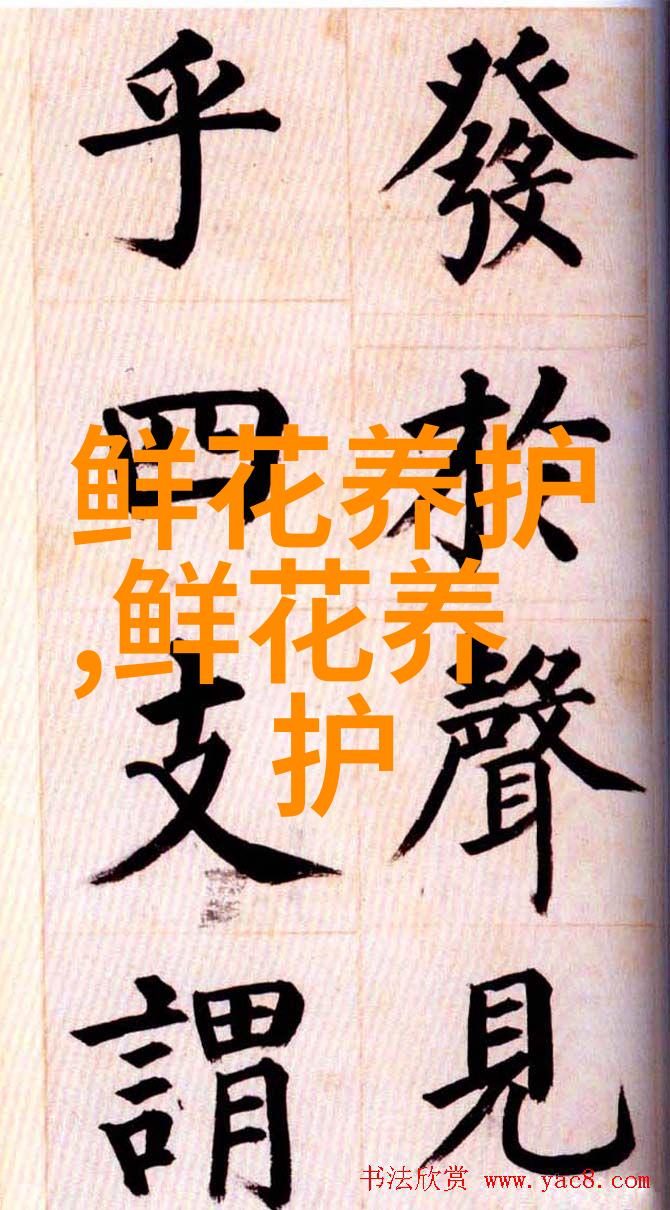 發於聲見
乎四支謂
鲜花养护
,鲜花养
护
书法欣赏 www.yac8.com